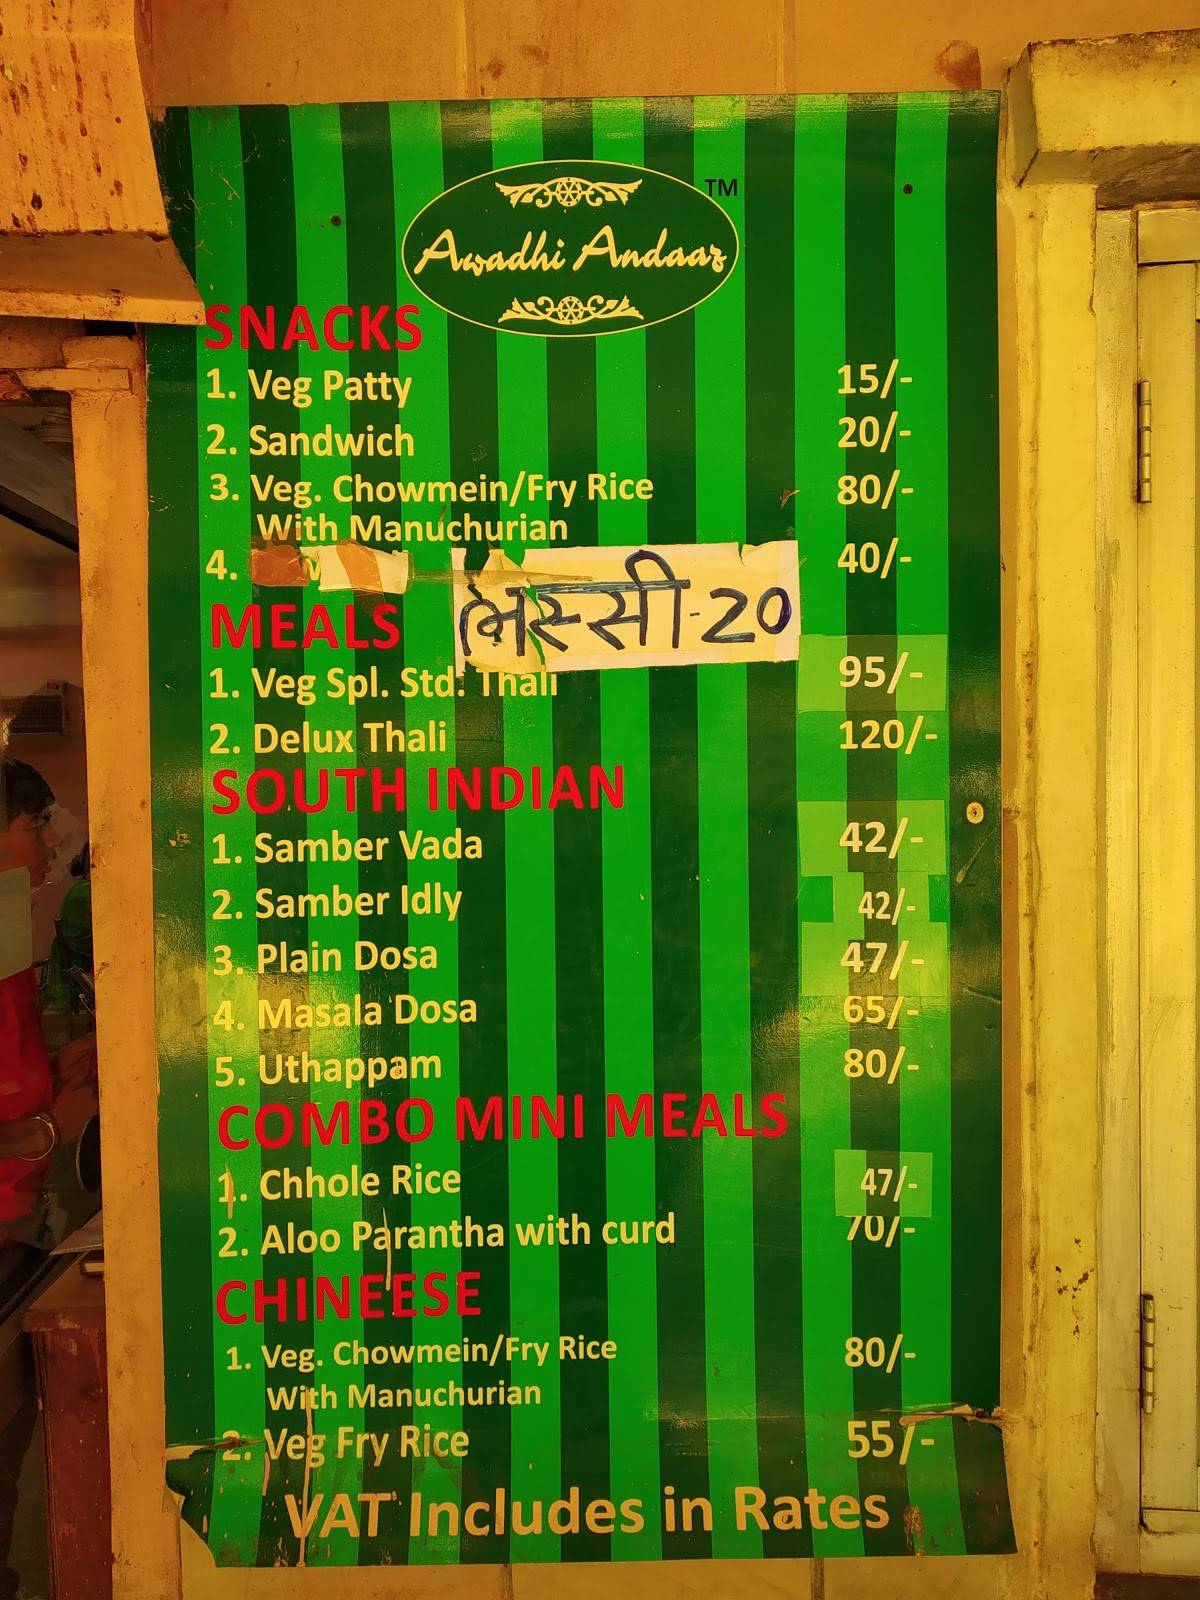 Awadhi Andaaz TM
SNACKS
1. Veg Patty 15/-
2. Sandwich 20/-
3. Veg. Chowmein/Fry Rice 80/-
With Manuchurian
4. 40/-
लस्सी-20
MEALS
1. Veg Spl. Std. Thali 95/-
2. Delux Thali 120/-
SOUTH INDIAN
1. Samber Vada 42/-
2. Samber Idly 42/-
3. Plain Dosa 47/-
4. Masala Dosa 65/-
5. Uthappam 80/-
COMBO MINI MEALS
1. Chhole Rice 47/-
2. Aloo Parantha with curd 70/-
CHINEESE
1. Veg. Chowmein/Fry Rice 80/-
With Manuchurian
2. Veg Fry Rice 55/-
VAT Includes in Rates